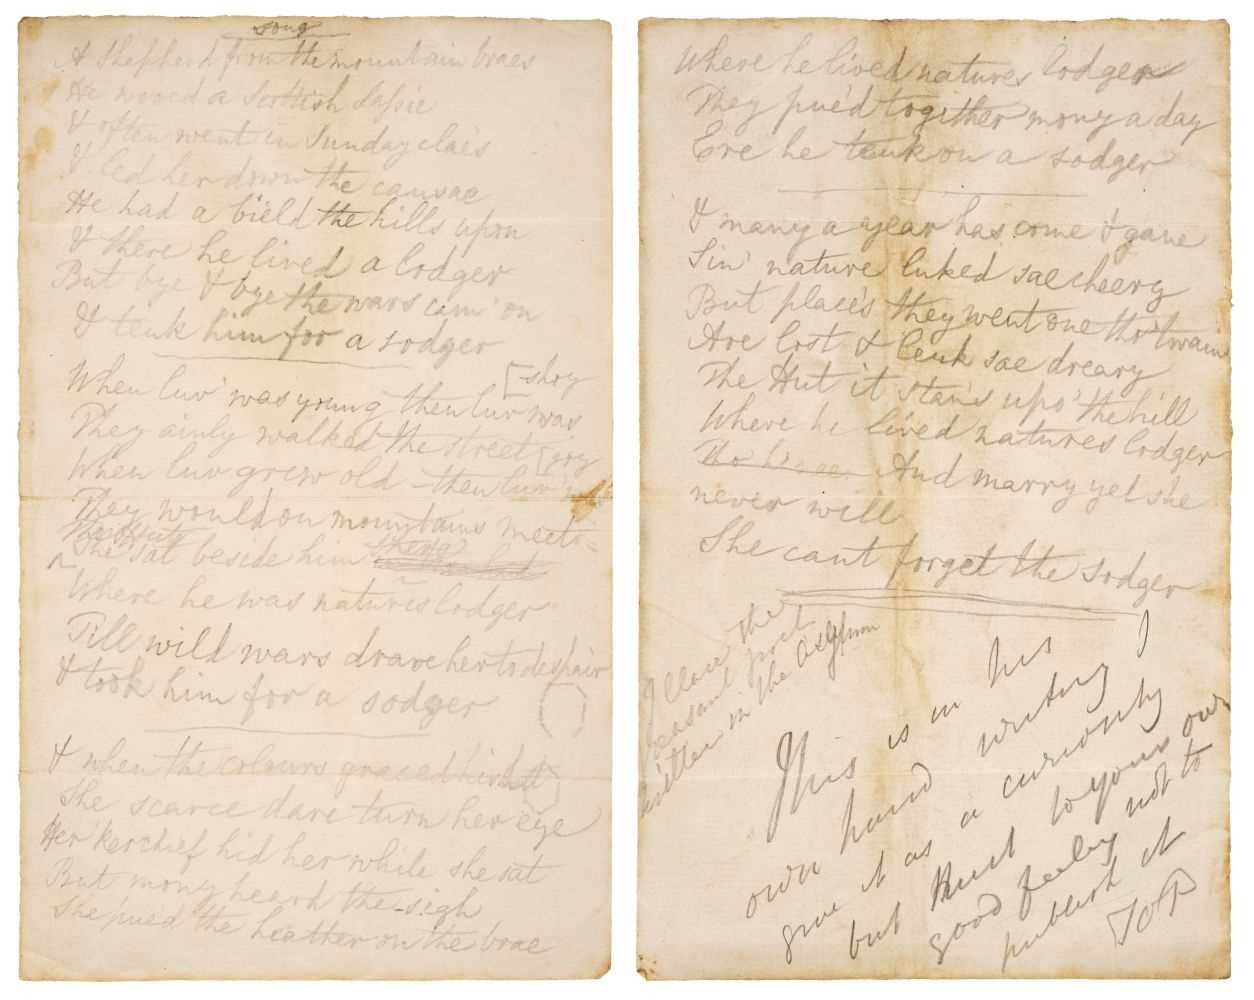 Song
A Shepherd from the mountain braes
He wooed a Scottish Lassie
& often went in Sunday claes
& led her down the causae
He had a bield the hills upon
& there he lived a lodger
But bye & bye the wars cam' on
& teuk him for a sodger
When luv' was young then luv was
[shy
They ainly walked the street
[joy
When luv grew old - then luv
They would on mountains meet
The Hut
She sat beside him
Where he was natures lodger
Till wild wars drave her to despair
& took him for a sodger
& when the colours graced his hat
She scarce dare turn her eye
Her kerchief hid her while she sat
But mony heard the sigh
She pued the heather on the brae
Where he lived natures lodger
They pue'd together mony a day
Ere he teuk on a sodger
& many a year has come & gane
Sin' nature luked sae cheery
But place's they went one tho' twain
Are lost & leuk sae dreary
The Hut it stan's upo' the hill
Where he lived natures lodger
And marry yet she
never will
She cant forget the sodger
Clare the
peasant poet
written in the Asylum
This is in his
own hand writing I
give it as a curiosity
but trust to your own
good feeling not to
publish it